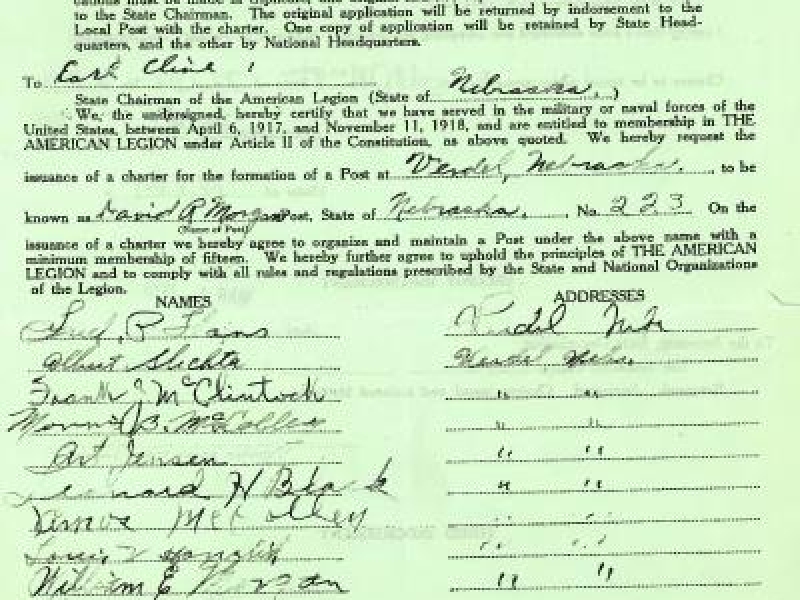 to the State Chairman. The original application will be returned by indorsement to the
Local Post with the charter. One copy of application will be retained by State Head-
quarters, and the other by National Headquarters.
To Earl Cline
State Chairman of the American Legion (State of Nebraska. )
We, the undersigned, hereby certify that we have served in the military or naval forces of the
United States, between April 6, 1917, and November 11, 1918, and are entitled to membership in THE
AMERICAN LEGION under Article II of the Constitution, as above quoted. We hereby request the
issuance of a charter for the formation of a Post at Verdel, Nebraska. , to be
known as David R Morgan Post, State of Nebraska. , No. 223 On the
(Name of Post)
issuance of a charter we hereby agree to organize and maintain a Post under the above name with a
minimum membership of fifteen. We hereby further agree to uphold the principles of THE AMERICAN
LEGION and to comply with all rules and regulations prescribed by the State and National Organizations
of the Legion.
NAMES ADDRESSES
Verdel Nebr
Albert Slechta Verdel, Nebr.
Frank J McClintock " "
B. " "
Art Jensen " "
Leonard H Black " "
" "
" "
William E Morgan " "